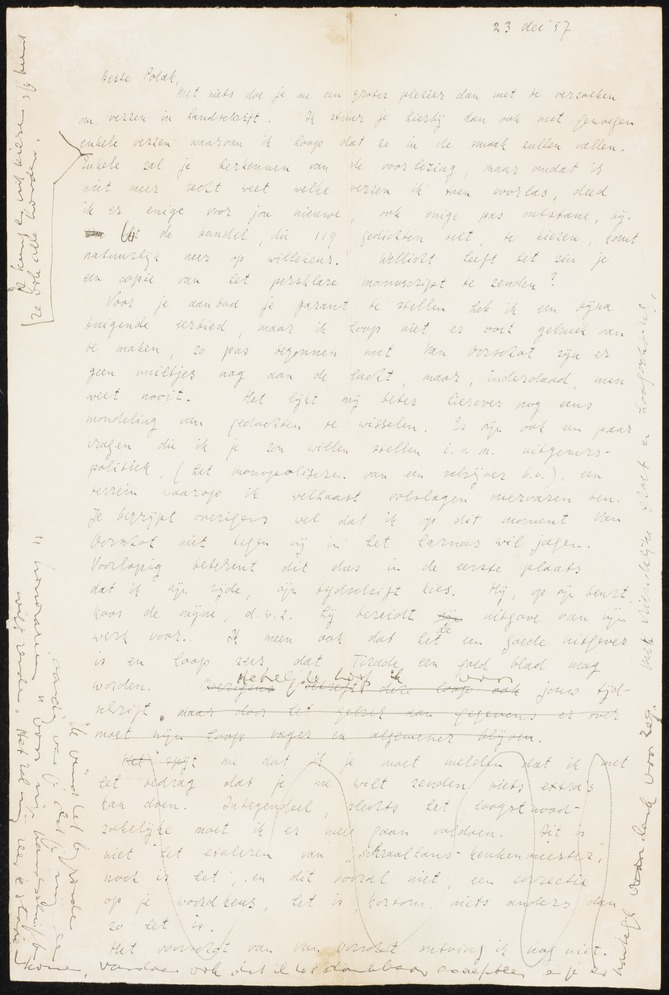 23 dec '57
Beste Polak,
Met niets doe je me een groter plezier dan met te verzoeken
om verzen in handschrift. Ik stuur je hierbij dan ook met genoegen
enkele verzen waarvan ik hoop dat ze in de smaak zullen vallen.
Enkele zal je herkennen van de voorlezing, maar omdat ik
niet meer recht weet welke verzen ik toen voorlas, deed
ik er enige voor jou nieuwe, ook enige pas ontstane, bij.
Uit de bundel, die 119 gedichten telt, te kiezen, komt
natuurlijk neer op willekeur. Wellicht heeft het zin je
een copie van het persklare manuscript te zenden?
Voor je aanbod je garant te stellen heb ik een bijna
buigende eerbied, maar ik hoop niet er ooit gebruik van
te maken, zo pas begonnen met Van Oorschot zijn er
geen vuiltjes nog aan de lucht, maar, inderdaad, men
weet nooit. Het lijkt mij beter hierover nog eens
mondeling van gedachten te wisselen. Er zijn ook een paar
vragen die ik je zou willen stellen i.v.m. uitgevers-
politiek, (het monopoliseren van een schrijver b.v.), een
terrein waarop ik welhaast volslagen onervaren ben.
Je begrijpt overigens wel dat ik op dit moment Van
Oorschot niet tegen mij in het harnas wil jagen.
Voorlopig betekent dit dus in de eerste plaats
dat ik zijn zijde, zijn tijdschrift kies. Hij, op zijn beurt,
koos de mijne, d.w.z. hij bereidt de uitgave van mijn
werk voor. Ik meen ook dat het een goede uitgever
is en hoop zeer dat Tirade een goed blad mag
worden. Hetzelfde hoop ik voor jouw tijd-
schrift. maar door het gebrek aan gegevens er over
moet mijn hoop vager en algemener blijven.
Het spijt me dat ik je moet melden dat ik met
het bedrag dat je me wilt zenden niets extra's
kan doen. Integendeel, slechts het hoogst nood-
zakelijke moet ik er mee gaan voldoen. Dit is
niet het etaleren van "schraalhans-keukenmeester",
noch is het, en dit vooral niet, een correctie
op je woordkeus, het is, kortom, niets anders dan
zo het is.
Het voorschot van Van Oorschot ontving ik nog niet.
Je kunt er uit kiezen of hun
ze ook alle houden.
Ik vind het bijzonder
aardig van je dat je mij een
"honorarium"
wilt zenden. Het zal mij zeer
komen, vandaar ook dat ik het dankbaar accepteer en je er
hartelijk dank voor zeg. Met vriendelijke groet en hoogachting,